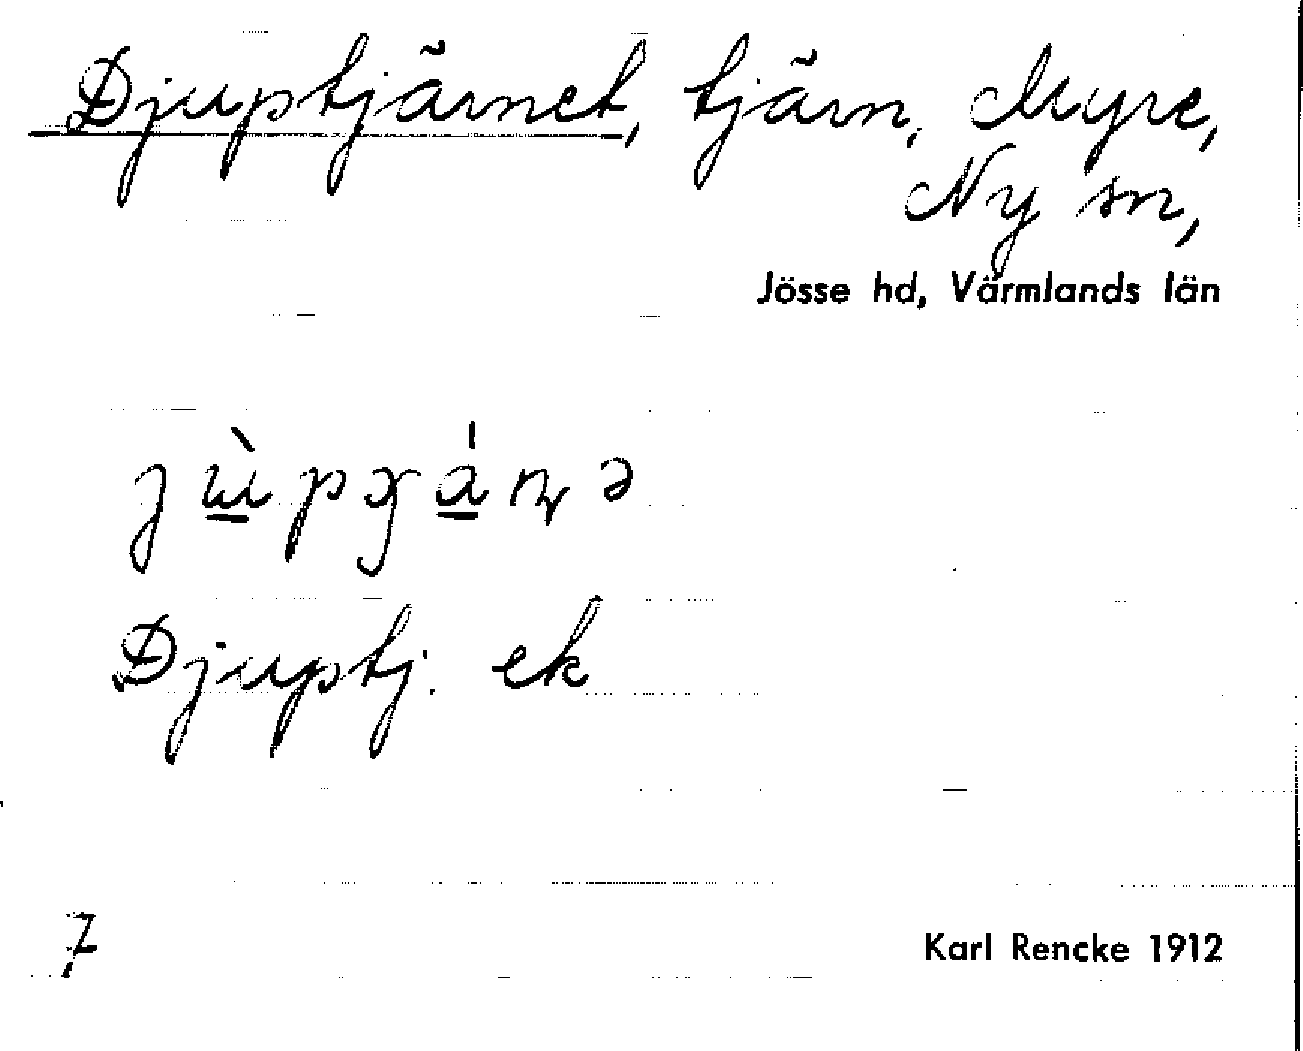 Djuptjärnet, tjärn, Myre,
Ny sn,
Jösse hd, Värmlands län
Djuptj. ek
7
Karl Rencke 1912